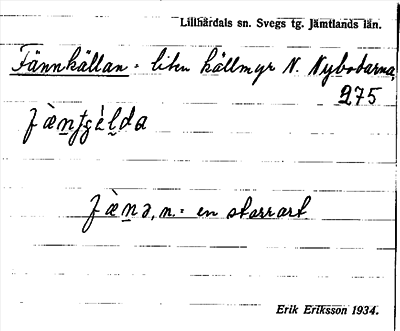 Lillhärdals sn. Svegs tg. Jämtlands län.
Fännkällan = liten källmyr N. Nybodarna,
275
fæ̀nʃɡéļda
fæ̀nə, n. = en starrart
Erik Eriksson 1934.